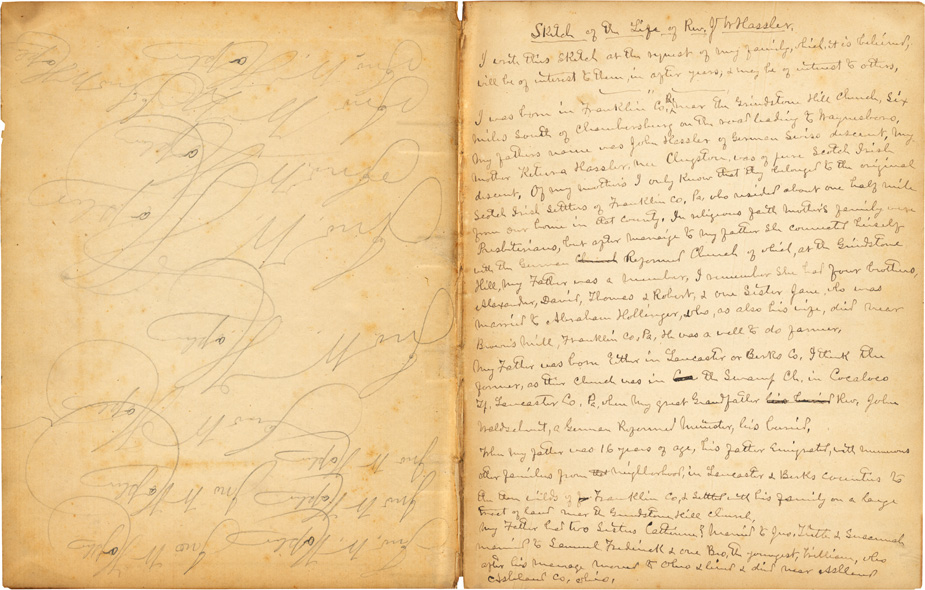 Sketch of the Life of Rev. J W Hassler.
I write this Sketch at the request of my family, which, it is believed,
will be of interest to them, in after years, & may be of interest to others,
I was born in Franklin Co, Pa near the Grindstone Hill Church, Six
miles South of Chambersburg on the road leading to Waynesboro,
My fathers name was John Hassler of German Swiss descent, My
mother Keturа Hassler. nee Clugston, was of pure Scotch Irish
descent, Of my mothers I only know that they belonged to the original
Scotch Irish Settlers of Franklin Co, Pa, who resided about one half mile
from our home in that county. In religious faith mother's family were
Presbiterians, but after marriage to my father She connected herself
with the German Church Reformed Church of which, at the Grindstone
Hill, my Father was a member, I remember She had four brothers,
Alexander, David, Thomas & Robert, & one Sister Jane, who was
married to Abraham Hollinger, who, as also his wife, died near
Brown's Mill, Franklin Co, Pa, He was a well to do farmer,
My Father was born Either in Lancaster or Berks Co, I think the
former, as their Church was in the Swamp Ch, in Cocalico
Tp, Lancaster Co, Pa, where my great Grandfather Rev, John
Waldschmit, a German Reformed Minister, his buried,
When my father was 16 years of age, his father Emigrated, with numerous
other families from neighborhood, in Lancaster & Berks counties to
the then wilds of Franklin Co, & Settled with his family on a large
tract of land near the Grindstone Hill Church,
My Father had two Sisters Catharine Married to Jno, & Susannah
married to Samuel Frederick & one Bro, the youngest, William, who
after his marriage moved to Ohio & lived & died near Ashland
Ashland Co, Ohio,
Jno. W.
Jno W
Jno W
Jno W